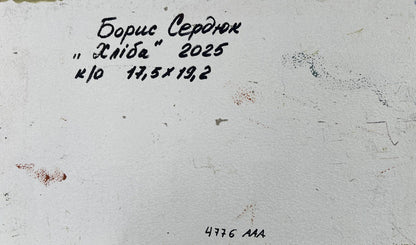 Борис Сердюк
„Хліба" 2025
к/о 17,5х19,2
4776 ААА